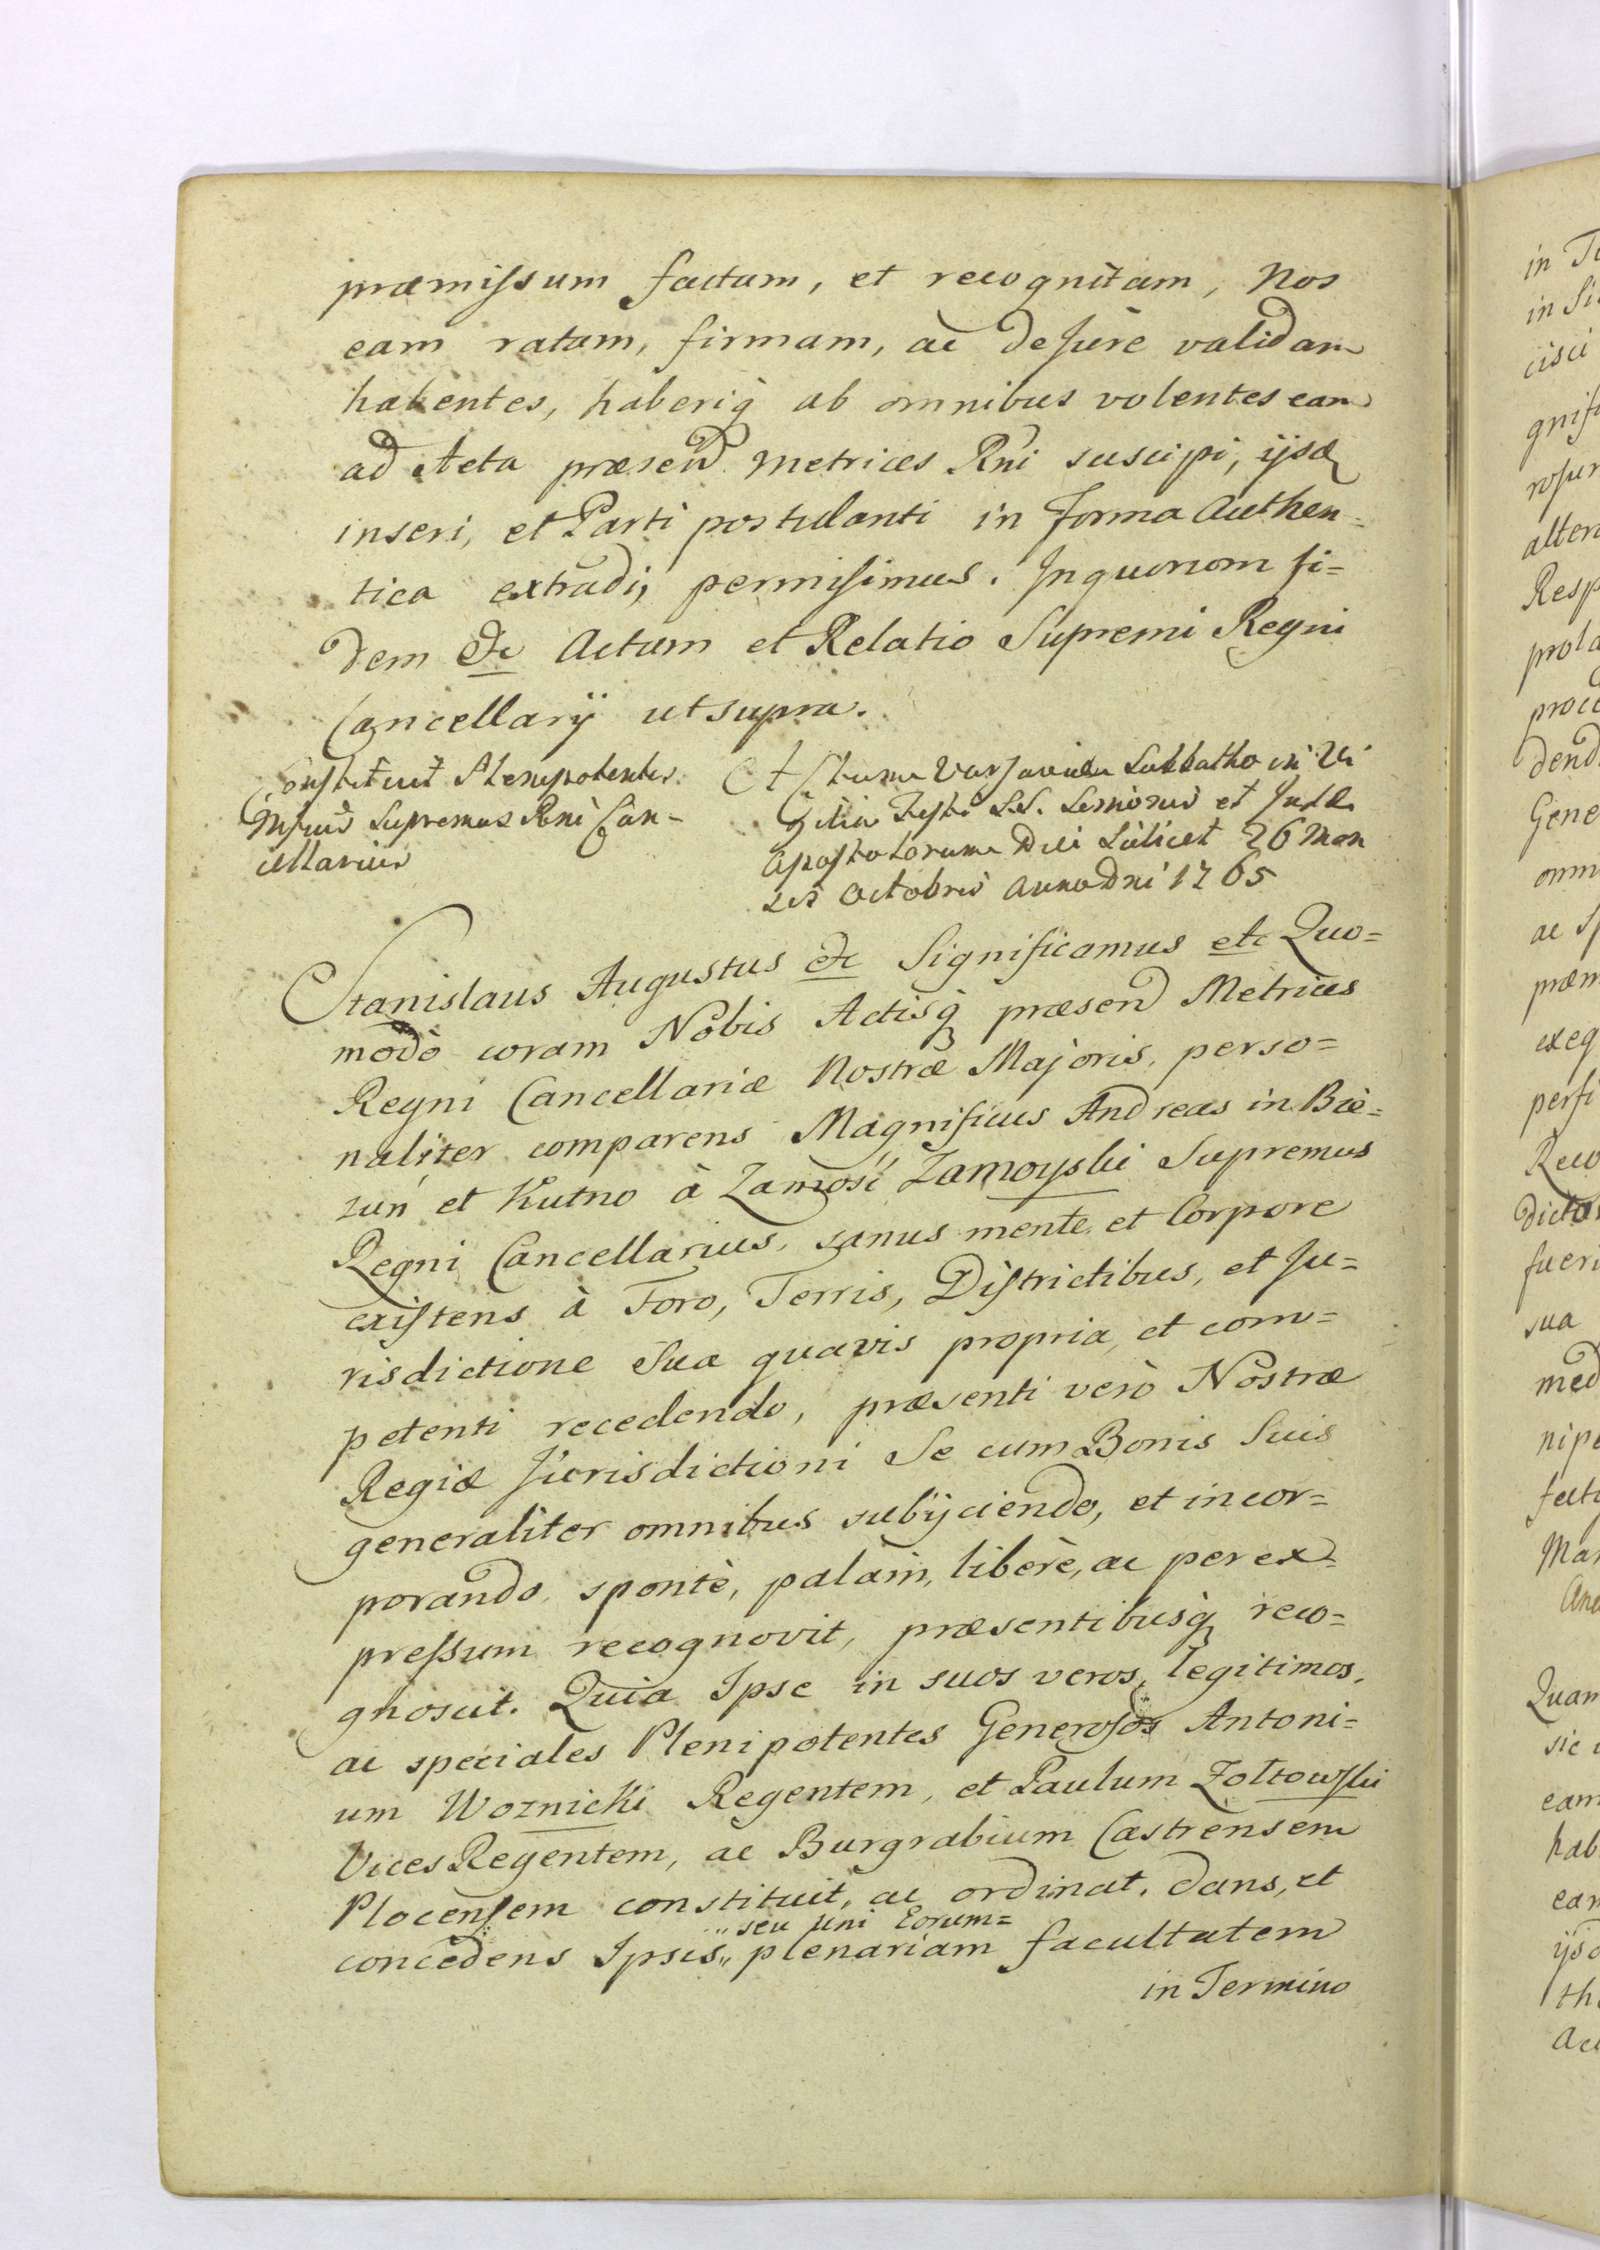 præmiſsum factam, et recognitam, Nos
eam ratam, firmam, ac de Jure validam
habentes, haberiq́ ab omnibus volentes eam
ad Acta præsen̄d Metrices Rn̄i suscipi, ijsq́
inseri, et Parti postulanti in Forma Authen=
tica extradi, permiſimus. In quorum fi=
dem &c Actum et Relatio Supremi Regni
Cancellarij ut supra.
Conſtituit Plenipotentes
Mſicus Supremus Rni Can-
cellarius
Actum Varſaviæ Sabbatho in Vi
gilia Feſti S.S. Simonis et Judæ
Apoſtolorum Diei Scilicet 26 Men
sis Octobris Anno Dni 1765
Stanislaus Augustus &c Significamus etc Quo=
modò coram Nobis Actisq́ præsen̄d Metrices
Regni Cancellariæ Nostræ Majoris, perso=
naliter comparens Magnificus Andreas in Bie=
zuń et Kutno à Zamość Zamoyski Supremus
Regni Cancellarius, sanus mente et Corpore
exiſtens à Foro, Terris, Diſtrictibus, et Ju=
risdictione Sua quavis propria, et com=
petenti recedendo, præsenti verò Nostræ
Regiæ Jurisdictioni Se cum Bonis Suis
generaliter omnibus subijciendo, et incor=
porando, spontè, palàm, liberè, ac per ex=
preſsum recognovit, præsentibusq́ reco=
gnoscit. Quia Ipse in suos veros, legitimos,
ac speciales Plenipotentes Generoſos Antoni=
um Woznicki Regentem, et Paulum Zoltowſki
Vices Regentem, ac Burgrabium Castrensem
Plocenſem constituit, ac ordinat. Dans, et
„seu uni Eorum=
concedens Ipsis„ plenariam facultatem
in Termino
in
in
cisci
alter
Resp
prola
Gene
omn
ac
præm
exeq
perfi
Reco
dicta
fueri
sua
med
nipo
Mar
Quam
sic
eam
hab
eam